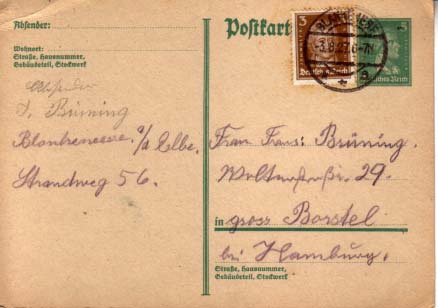 Absender:
Wohnort:
Straße, Hausnummer,
Gebäudeteil, Stockwerk
Absender
J. Brüning
Blankenese a/d Elbe.
Strandweg 56.
Postkart
3
Deutsches Reich
BLANKENESE
-3.8.27.6-7N
a
Deutsches Reich
Frau Frans: Brüning.
29.
in gross Borstel
bei Hamburg.
Straße, Hausnummer,
Gebäudeteil, Stockwerk